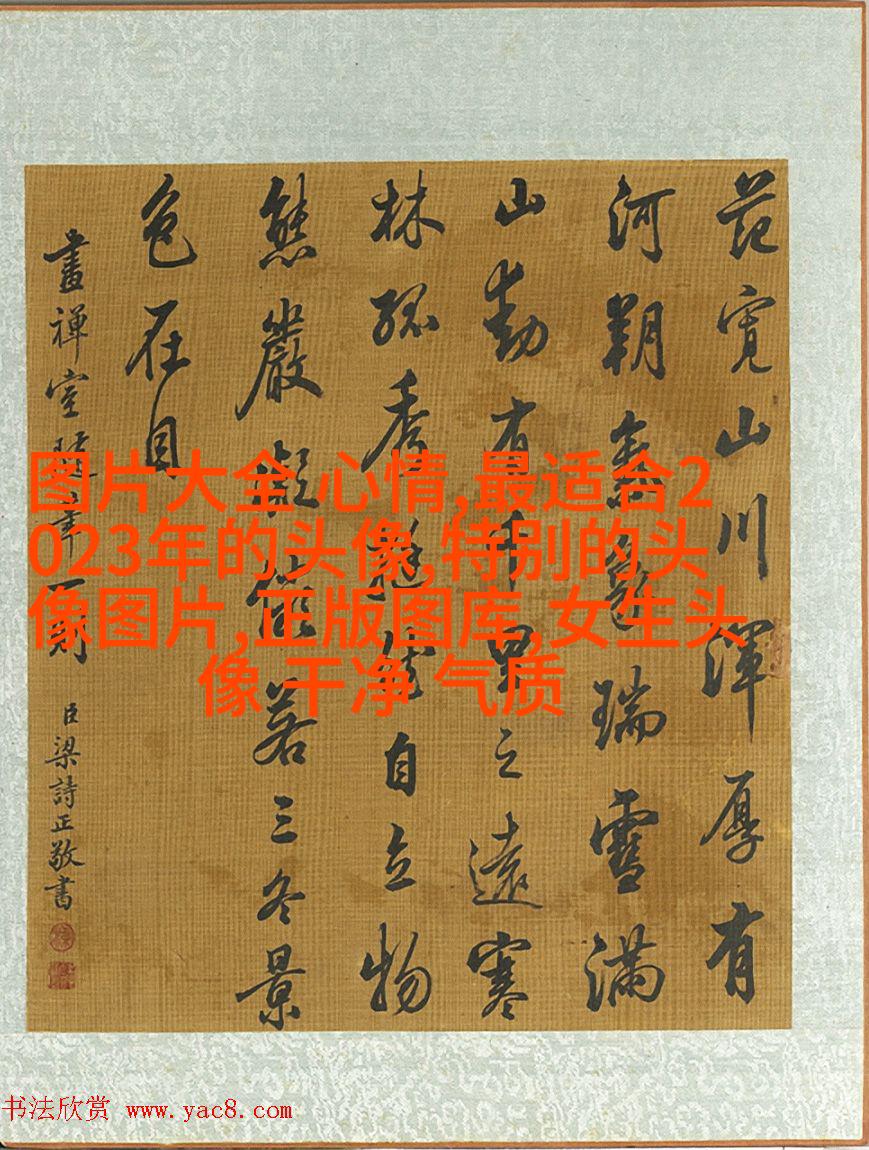 范寬山川渾厚有
河朔氣象瑞雪滿
山動有千里之遠寒
林孤秀挺然自立物
態嚴凝儼若三冬景
色在目
畫禪室隨筆一則 臣梁詩正敬書
图片大全 心情,最适合2
023年的头像,特别的头
像图片,正版图库,女生头
像 干净 气质
书法欣赏 www.yac8.com